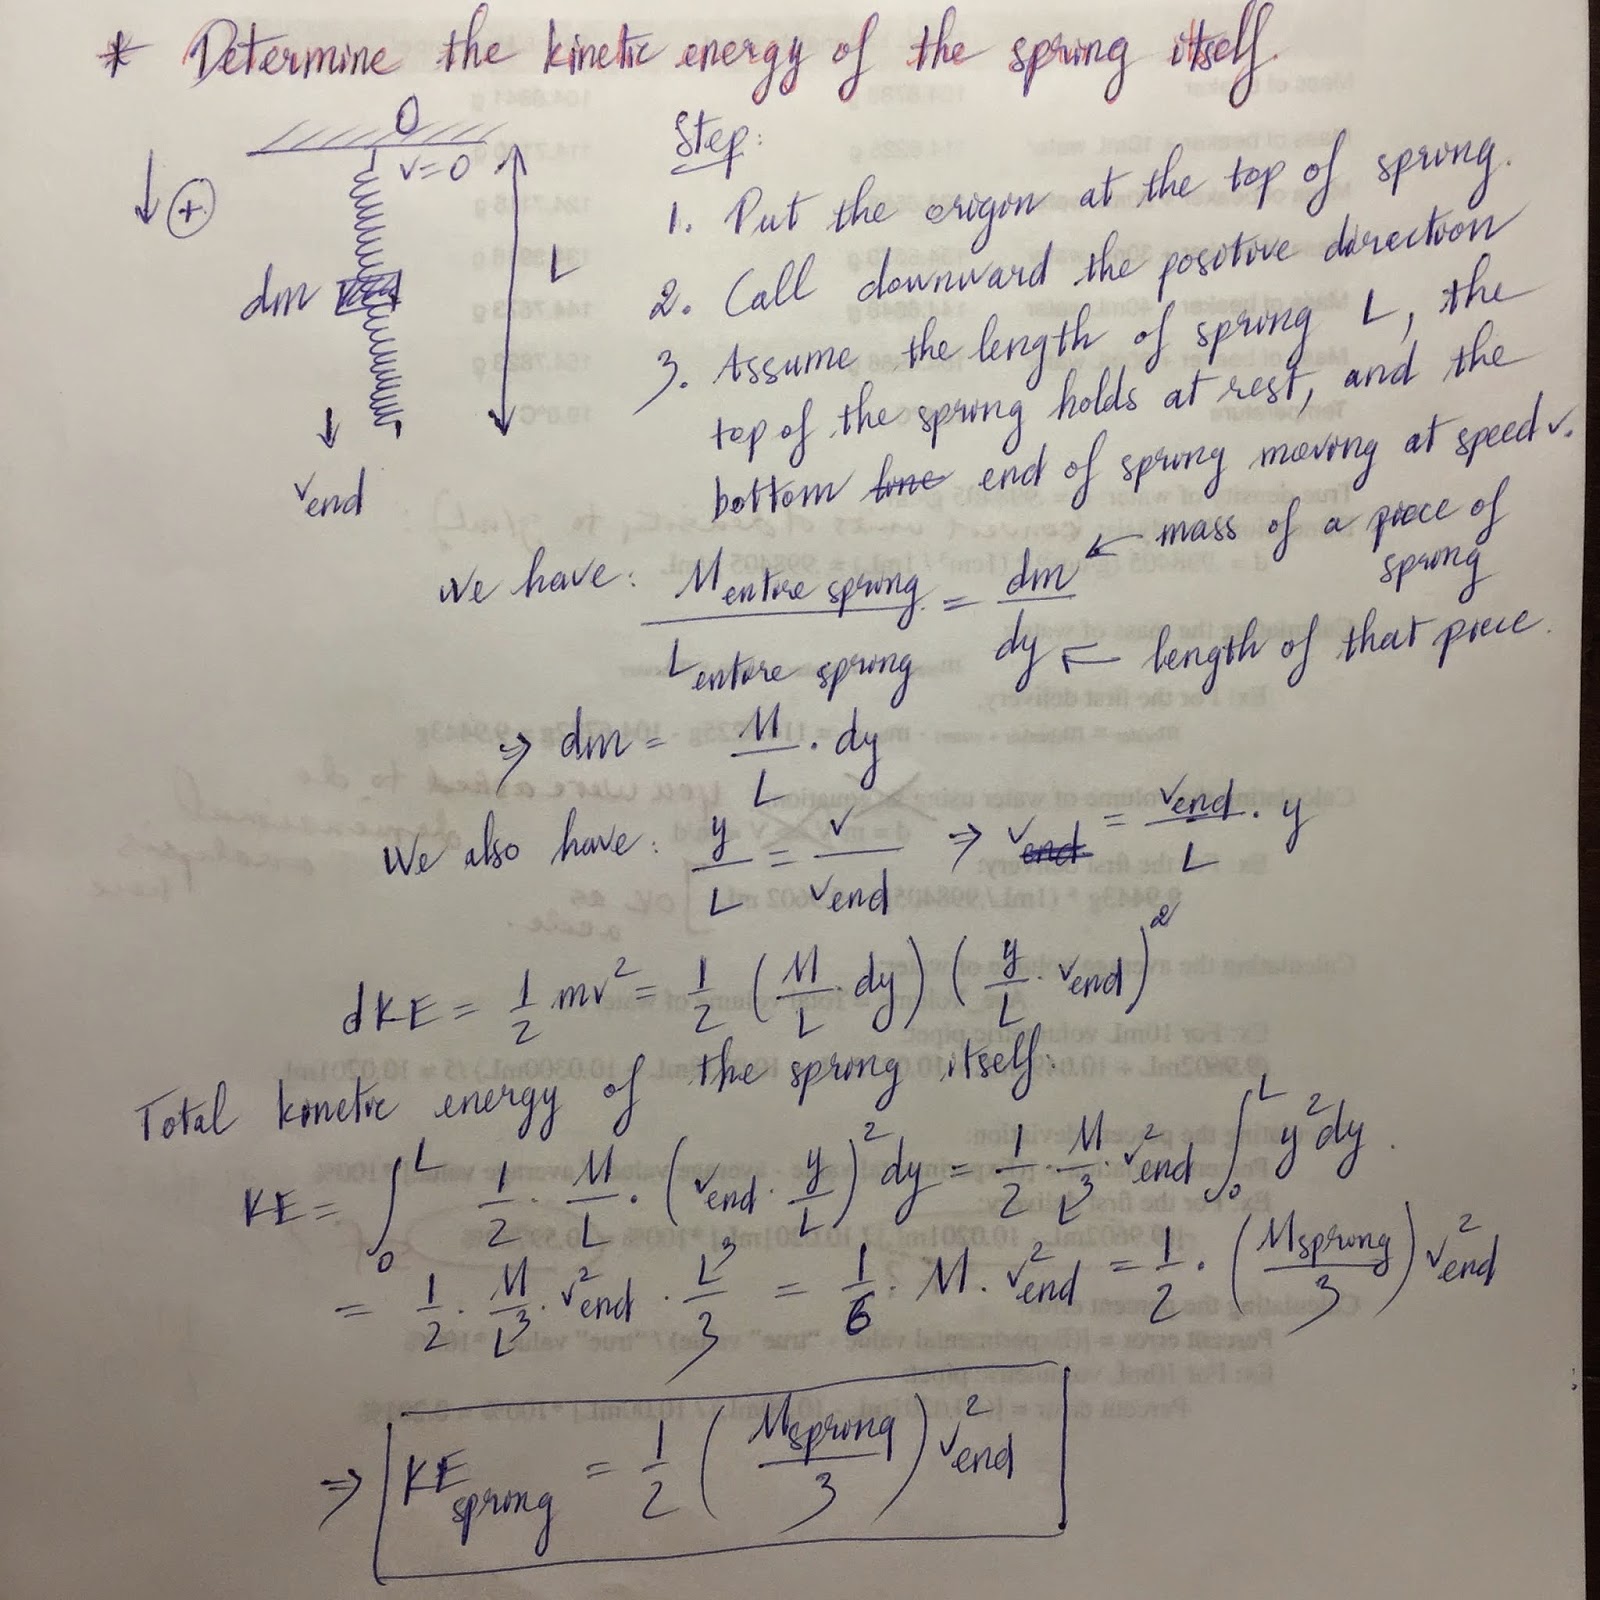 * Determine the kinetic energy of the spring itself.
O
v=0
+
L
dm
vend
Step:
1. Put the origin at the top of spring.
2. Call downward the positive direction
3. Assume the length of spring L, the
top of the spring holds at rest, and the
bottom end of spring moving at speed v.
We have: M entire spring / L entire spring = dm / dy
← mass of a piece of
spring
← length of that piece.
⇒ dm = M/L · dy
We also have: y/L = v/vend ⇒ v = vend/L · y
dKE = 1/2 mv² = 1/2 (M/L · dy) (y/L · vend)²
Total kinetic energy of the spring itself:
KE = ∫₀ᴸ 1/2 · M/L · (vend · y/L)² dy = 1/2 · M/L³ · v²end ∫₀ᴸ y² dy.
= 1/2 · M/L³ · v²end · L³/3 = 1/6 · M · v²end = 1/2 · (Mspring/3) v²end
⇒ KE spring = 1/2 (Mspring/3) v²end